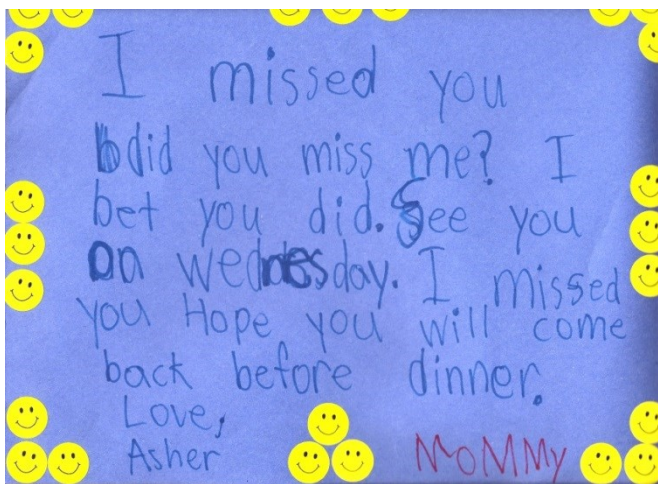 I missed you
did you miss me? I
bet you did. See you
on wednesday. I missed
you Hope you will come
back before dinner.
Love,
Asher
MOMMy